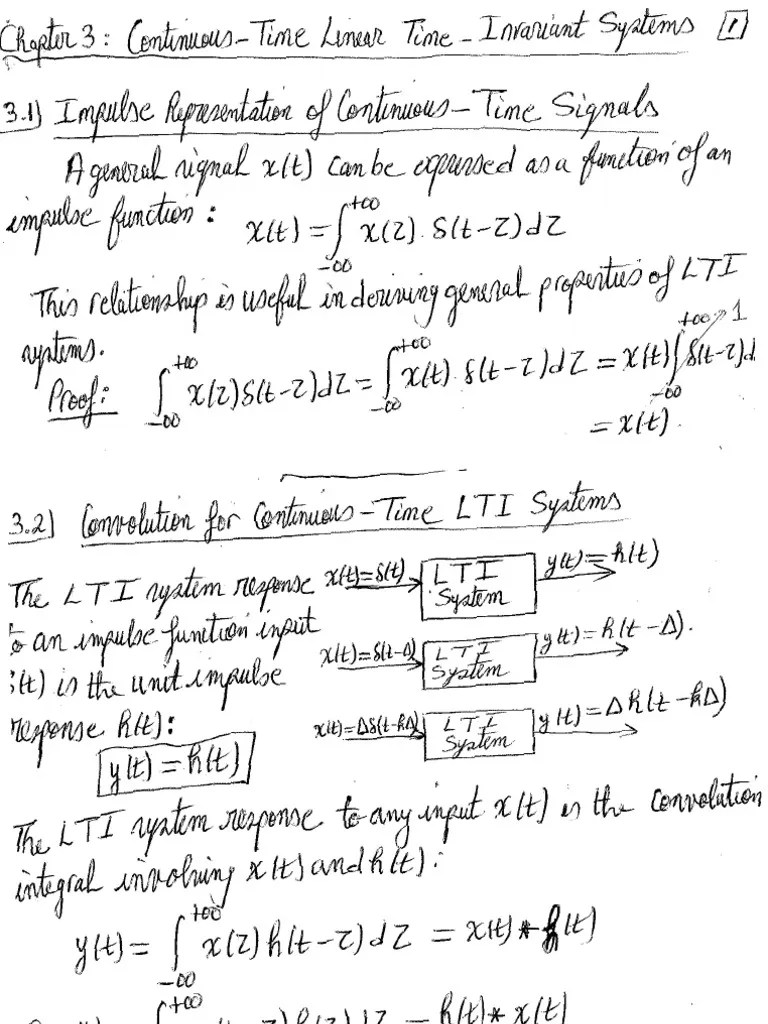 Chapter 3: Continuous-Time Linear Time-Invariant Systems 1
3.1) Impulse Representation of Continuous-Time Signals
A general signal x(t) can be expressed as a function of an
impulse function: x(t) = ∫_{-∞}^{+∞} x(τ).δ(t-τ)dτ
This relationship is useful in deriving general properties of LTI
systems.
Proof: ∫_{-∞}^{+∞} x(τ)δ(t-τ)dτ = ∫_{-∞}^{+∞} x(t).δ(t-τ)dτ = x(t)∫_{-∞}^{+∞} δ(t-τ)d → 1
= x(t).
3.2) Convolution for Continuous-Time LTI Systems
The LTI system response x(t)=δ(t) LTI System y(t)=h(t)
to an impulse function input x(t)=δ(t-Δ) LTI System y(t)=h(t-Δ).
(t) is the unit impulse
response h(t): x(t)=Δδ(t-kΔ) LTI System y(t)=Δh(t-kΔ)
y(t)=h(t)
The LTI system response to any input x(t) is the convolution
integral involving x(t) and h(t):
y(t) = ∫_{-∞}^{+∞} x(τ)h(t-τ)dτ = x(t)*h(t)
+∞ -τ)h(τ)dτ = h(t)*x(t)